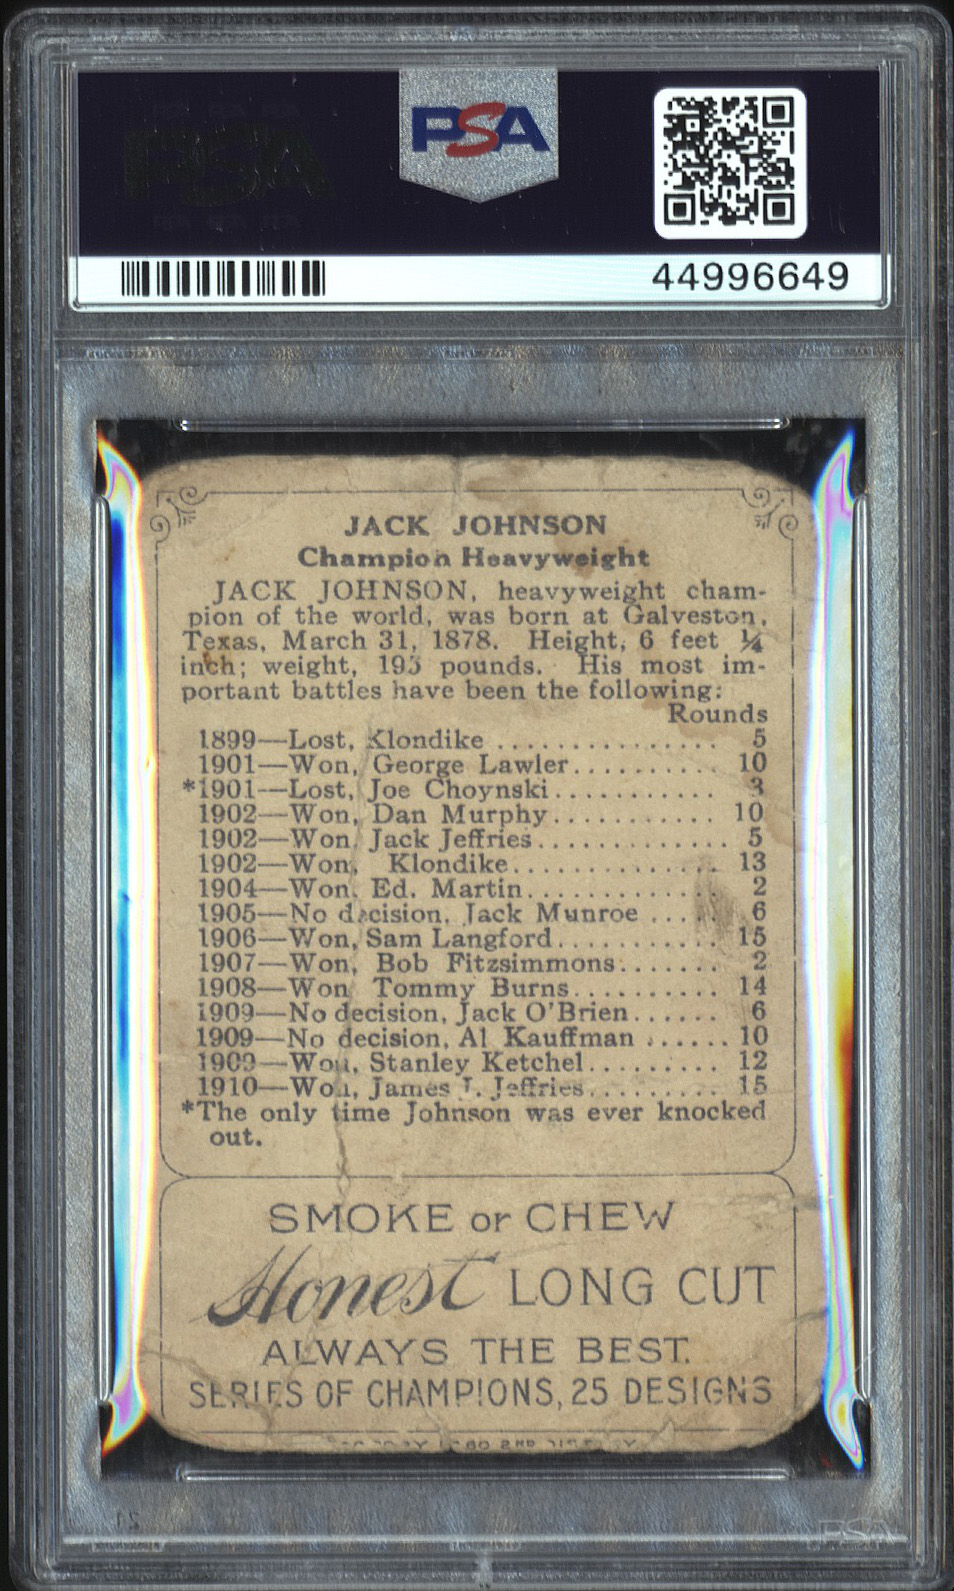 PSA
44996649
JACK JOHNSON
Champion Heavyweight
JACK JOHNSON, heavyweight cham-
pion of the world, was born at Galveston,
Texas, March 31, 1878. Height, 6 feet ¼
inch; weight, 193 pounds. His most im-
portant battles have been the following:
Rounds
1899—Lost, Klondike ............... 5
1901—Won, George Lawler.......... 10
*1901—Lost, Joe Choynski........... 3
1902—Won, Dan Murphy........... 10
1902—Won, Jack Jeffries............. 5
1902—Won, Klondike............... 13
1904—Won, Ed. Martin............. 2
1905—No decision, Jack Munroe ..... 6
1906—Won, Sam Langford........... 15
1907—Won, Bob Fitzsimmons....... 2
1908—Won, Tommy Burns.......... 14
1909—No decision, Jack O'Brien...... 6
1909—No decision, Al Kauffman ...... 10
1909—Won, Stanley Ketchel......... 12
1910—Won, James J. Jeffries.......... 15
*The only time Johnson was ever knocked
out.
SMOKE or CHEW
Honest LONG CUT
ALWAYS THE BEST.
SERIES OF CHAMPIONS, 25 DESIGNS
2ND
PSA